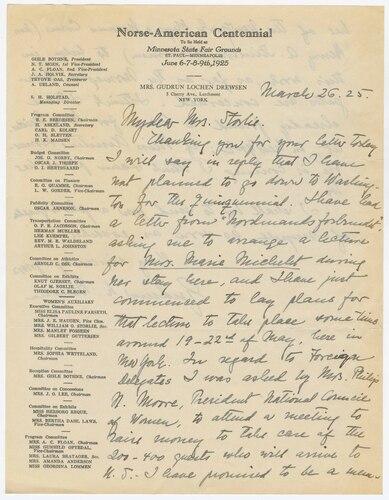 Norse-American Centennial
To be Held at
Minnesota State Fair Grounds
ST. PAUL—MINNEAPOLIS
June 6-7-8-9th, 1925
MRS. GUDRUN LOCHEN DREWSEN
3 Cherry Ave., Larchmont
NEW YORK
GISLE BOTHNE, President
N. T. MOEN, 1st Vice-President
A. C. FLOAN, 2nd Vice-President
J. A. HOLVIK, Secretary
TRYGVE OAS, Treasurer
A. UELAND, Counsel
S. H. HOLSTAD,
Managing Director
Program Committee
H. ASKELAND, Secretary
CARL D. KOLSET
O. H. SLETTEN
H. K. MADSEN
Budget Committee
JOS. G. NORBY, Chairman
OSCAR J. THORPE
O. I. HERTSGAARD
Committee on Finance
E. G. QUAMME, Chairman
L. W. GORDER, Vice-Chairman
Publicity Committee
OSCAR ARNESON, Chairman
Transportation Committee
O. P. B. JACOBSON, Chairman
HERMAN MUELLER
LEE KUEMPEL
REV. M. E. WALDELAND
ARTHUR L. JOHNSTON
Committee on Athletics
ARNOLD C. OSS, Chairman
Committee on Exhibits
KNUT GJERSET, Chairman
OLAF M. NORLIE
THEODORE C. BLEGEN
WOMEN'S AUXILIARY
Executive Committee
MISS ELISA PAULINE FARSETH,
Chairman
MRS. WILLIAM O. STORLIE, Sec.
MRS. MANLEY FOSSEEN
MRS. GILBERT GUTTERSEN
Hospitality Committee
Chairman
Reception Committee
MRS. GISLE BOTHNE, Chairman
Committee on Concessions
MRS. J. O. LEE, Chairman
Committee on Exhibits
MISS HERBORG REQUE, Chairman
MRS. BERTHA DAHL LAWS,
Vice-Chairman
Program Committee
MRS. A. C. FLOAN, Chairman
MRS. AMANDA ANDERSON
MISS GEORGINA LOMMEN
March 26. 25
My dear Mrs. Storlie.
Thanking you for your letter today
I will say in reply that I have
not planned to go down to Washing-
ton for the quinquennial. I have had
a letter from "Nordmandsforbundet"
asking me to arrange a lecture
for Mrs. Marie Michelet during
her stay here, and I have just
commenced to lay plans for
that lecture to take place sometime
around 19-22nd of May, here in
New York. In regard to Foreign
Delegates I was asked by Mrs. Philip
N. Moore, President National Council
of Women, to attend a meeting to
raise money to take care of the
200-400 guests who will arrive to
N. Y. I have promised to be a mem-